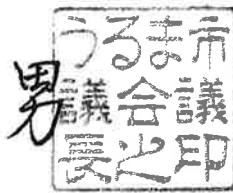 男
うるま市
議会議
長之印